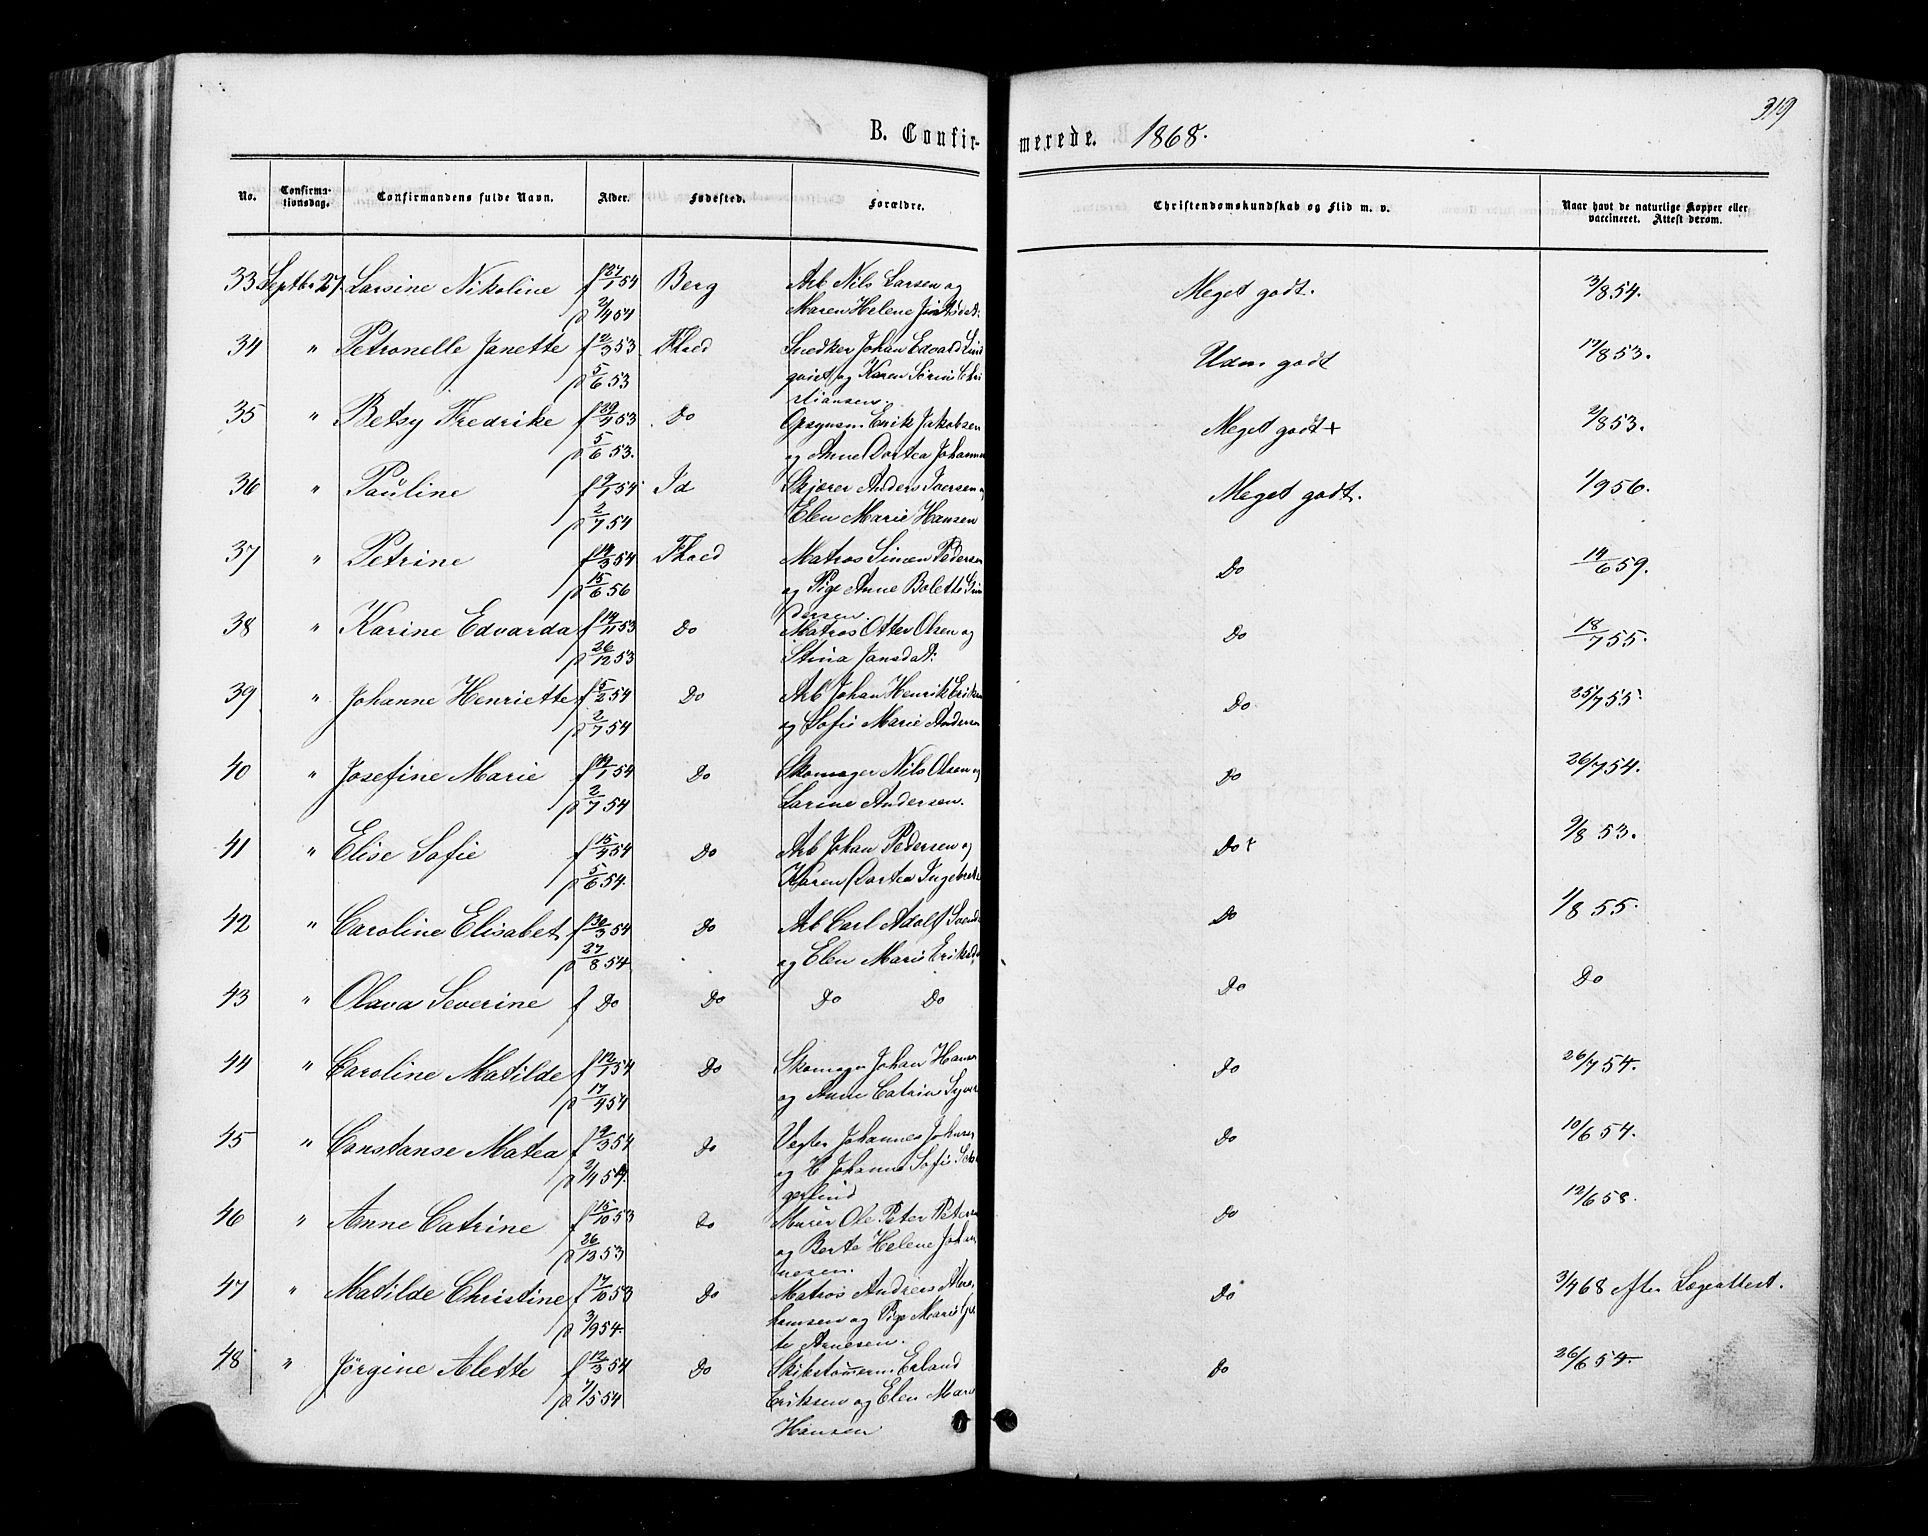 319
B. Confirmerede. 1868.
No. Confirmationsdag. Confirmandens fulde Navn. Alder. Fødested. Forældre. Christendomskundskab og Flid m. v. Naar havt de naturlige Kopper eller vaccineret. Attest derom.
33 Septbr 27. Larsine Nikoline f 27/1 54 Berg Arb Nils Larsen og Meget godt. 3/8 54.
p 2/4 54 Maren Helene
34 " Petronelle Janette f 2/3 53 Fhald Snedker Johan Edvard Lind Udm. godt 17/8 53.
p 5/6 53 qvist og Karen Sørine Chri
stiansen.
35 " Betsy Fredrike f 29/4 53 Do Opsynsm. Erik Jakobsen Meget godt + 2/8 53.
p 5/6 53. og Anne Dortea Johanne
36 " Pauline f 9/1 54 Id Skjører Anders Iversen og Meget godt. 1/9 56.
p 2/7 54 Elen Marie Hansen
37 " Petrine f 14/3 54 Fhald Matros Simen Pedersen Do 14/6 59.
p 15/6 56 og Pige Anne Bolette
dersen.
38 " Karine Edvarda f 14/11 53 Do Matros Otter Olsen og Do 18/7 55.
p 26/12 53 Stina Jansdat:
39 " Johanne Henriette f 5/2 54 Do Arb Johan Henrik Eriksen Do 25/7 55
p 2/7 54 og Sofie Marie Andersen
40 " Josefine Marie f 14/1 54 Do Skomager Nils Olsen og Do 26/7 54.
p 2/7 54 Larine Andersen.
41 " Elise Sofie f 15/4 54 Do Arb Johan Pedersen og Do + 9/8 53.
p 5/6 54. Karen Dortea Ingebrets
42 " Caroline Elisabet f 30/3 54 Do Arb Carl Adolf Svends Do 1/8 55.
p 27/8 54. og Elen Marie Eriksd
43 " Olava Severine f Do Do Do Do Do Do
44 " Caroline Matilde f 12/1 54 Do Skomager Johan Hanse Do 26/7 54.
p 17/4 54 og Anne Catrine Syver
45 " Constanse Matea f 9/3 54 Do Vegter Johannes Johnsen Do 10/6 54.
p 2/4 54. og H Johanne Sofie
gerlund
46 " Anne Catrine f 15/10 53 Do Murer Ole Peter Peterse Do 12/6 58.
p 26/12 53 og Berte Helene Johan
nesen.
47 " Matilde Christine f 7/10 53 Do Matros Andreas Abra Do 3/4 68 efter Lægeattest.
p 3/9 54. hamsen og Pige Marie
te Arnesen.
48 " Jørgine Alette f 12/3 54 Do Skibstømerm. Erland Do 26/6 54.
p 7/5 54 Eriksen og Elen Marie
Hansen